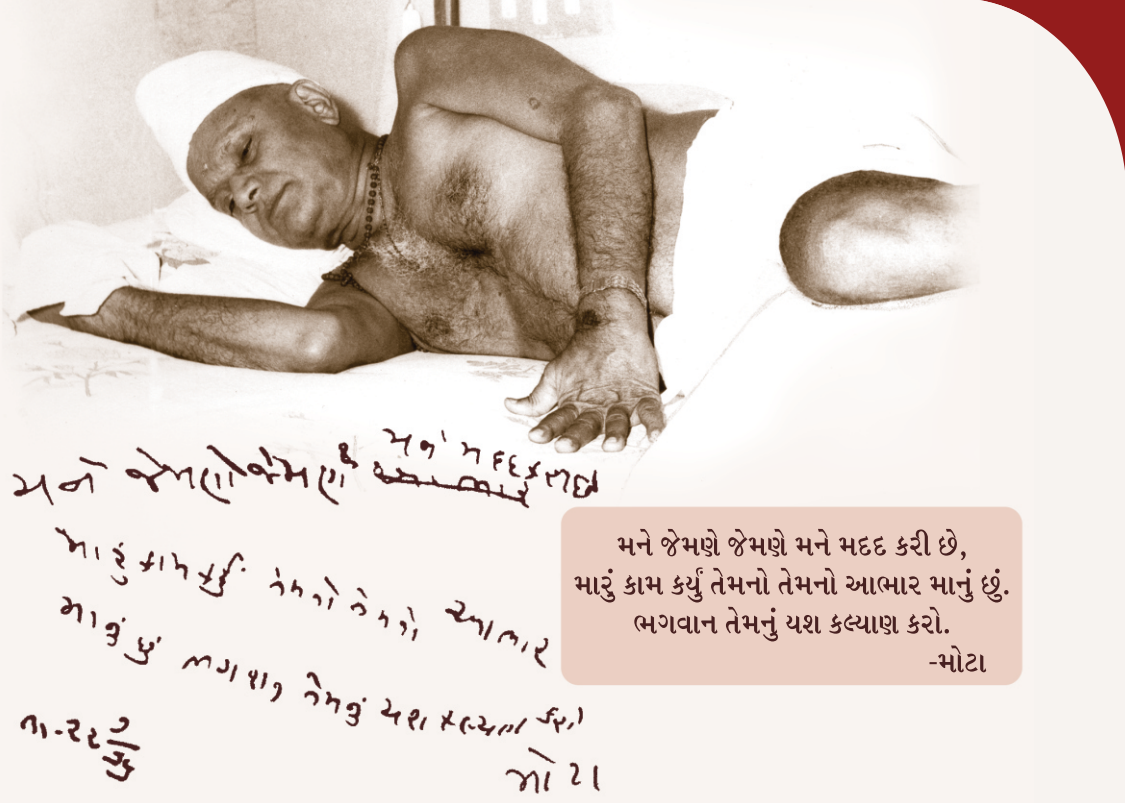 મને જેમણે જેમણે મને મદદ કરી છે
મારું કામ કર્યું તેમનો તેમનો આભાર
માનું છું ભગવાન તેમનું યશ કલ્યાણ કરો
મોટા
તા-૨૨
મને જેમણે જેમણે મને મદદ કરી છે,
મારું કામ કર્યું તેમનો તેમનો આભાર માનું છું.
ભગવાન તેમનું યશ કલ્યાણ કરો.
-મોટા